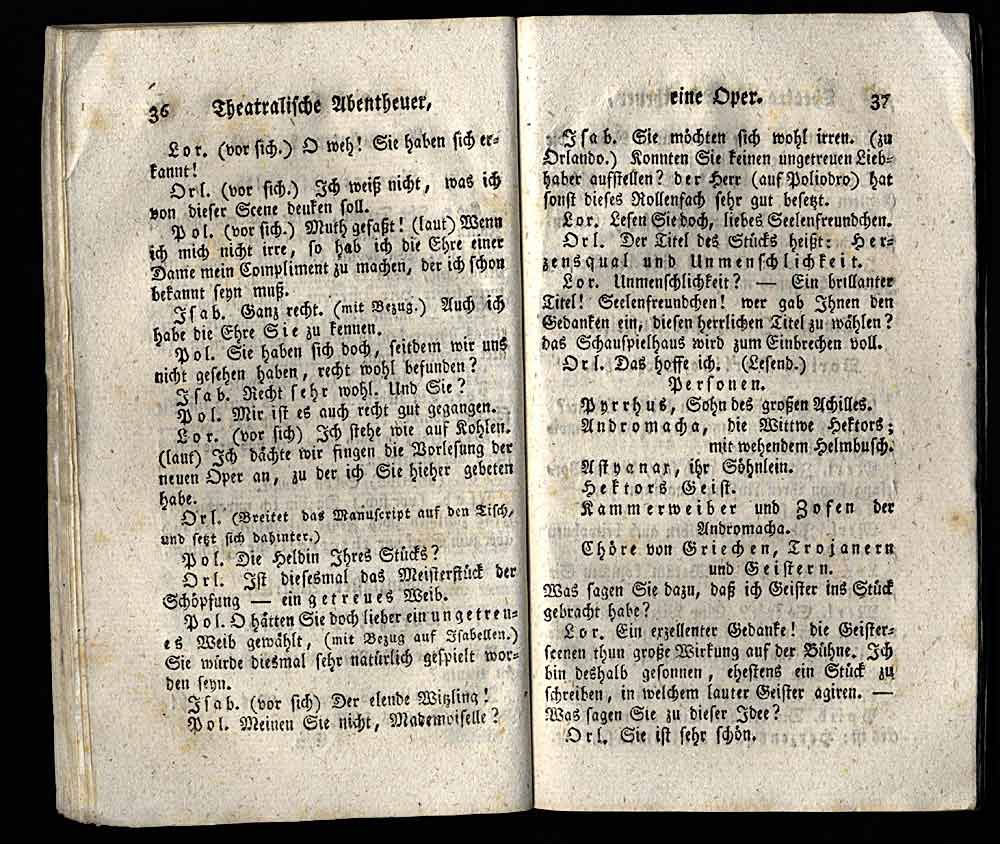 36 Theatralische Abentheuer,
Lor. (vor sich.) O weh! Sie haben sich er-
kannt!
Orl. (vor sich.) Ich weiß nicht, was ich
von dieser Scene denken soll.
Pol. (vor sich.) Muth gefaßt! (laut) Wenn
ich mich nicht irre, so hab ich die Ehre einer
Dame mein Compliment zu machen, der ich schon
bekannt seyn muß.
Isab. Ganz recht. (mit Bezug.) Auch ich
habe die Ehre Sie zu kennen.
Pol. Sie haben sich doch, seitdem wir uns
nicht gesehen haben, recht wohl befunden?
Isab. Recht sehr wohl. Und Sie?
Pol. Mir ist es auch recht gut gegangen.
Lor. (vor sich) Ich stehe wie auf Kohlen.
(laut) Ich dächte wir fingen die Vorlesung der
neuen Oper an, zu der ich Sie hieher gebeten
habe.
Orl. (Breitet das Manuscript auf den Tisch,
und setzt sich dahinter.)
Pol. Die Heldin Ihres Stücks?
Orl. Ist diesesmal das Meisterstück der
Schöpfung — ein getreues Weib.
Pol. O hätten Sie doch lieber ein ungetreu-
es Weib gewählt, (mit Bezug auf Isabellen.)
Sie würde diesmal sehr natürlich gespielt wor-
den seyn.
Isab. (vor sich) Der elende Witzling!
Pol. Meinen Sie nicht, Mademoiselle?
eine Oper. 37
Isab. Sie möchten sich wohl irren. (zu
Orlando.) Konnten Sie keinen ungetreuen Lieb-
haber aufstellen? der Herr (auf Poliodro) hat
sonst dieses Rollenfach sehr gut besetzt.
Lor. Lesen Sie doch, liebes Seelenfreundchen.
Orl. Der Titel des Stücks heißt: Her-
zensqual und Unmenschlichkeit.
Lor. Unmenschlichkeit? — Ein brillanter
Titel! Seelenfreundchen! wer gab Ihnen den
Gedanken ein, diesen herrlichen Titel zu wählen?
das Schauspielhaus wird zum Einbrechen voll.
Orl. Das hoffe ich. (Lesend.)
Personen.
Pyrrhus, Sohn des großen Achilles.
Andromacha, die Wittwe Hektors;
mit wehendem Helmbusch.
Astyanax, ihr Söhnlein.
Hektors Geist.
Kammerweiber und Zofen der
Andromacha.
Chöre von Griechen, Trojanern
und Geistern.
Was sagen Sie dazu, daß ich Geister ins Stück
gebracht habe?
Lor. Ein exzellenter Gedanke! die Geister-
scenen thun große Wirkung auf der Bühne. Ich
bin deshalb gesonnen, ehestens ein Stück zu
schreiben, in welchem lauter Geister agiren. —
Was sagen Sie zu dieser Idee?
Orl. Sie ist sehr schön.